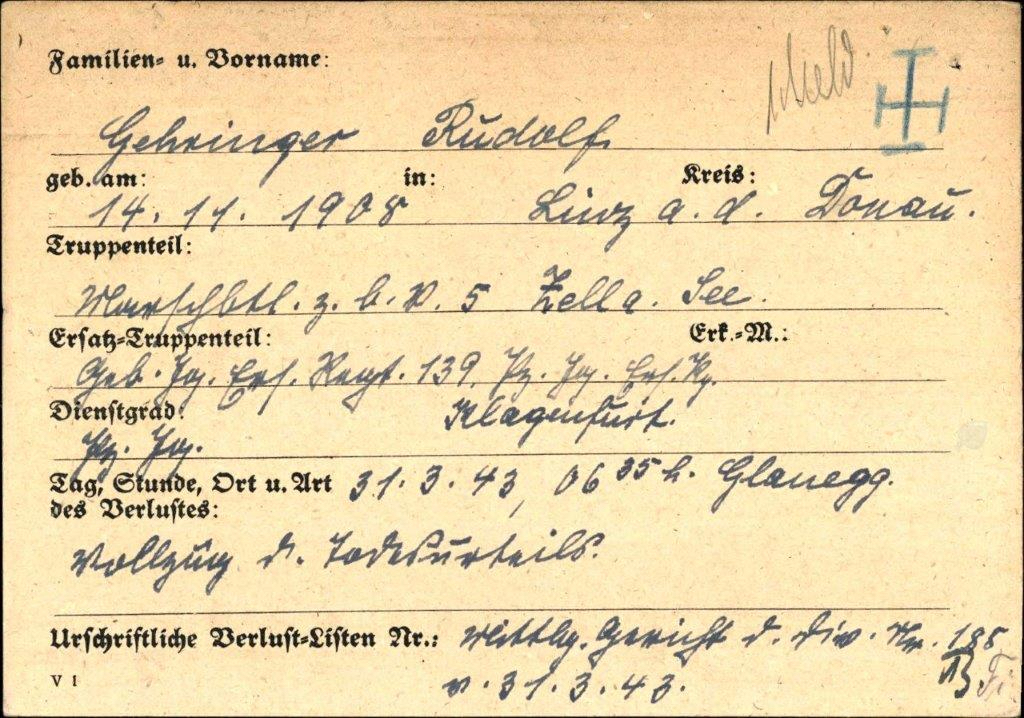 Familien- u. Vorname:
Gehringer Rudolf
geb. am: in: Kreis:
14. 11. 1908 Linz a. d. Donau.
Truppenteil:
Marschbtl. z. b. V. 5 Zell a. See.
Ersatz-Truppenteil: Erk.-M.:
Geb. Jg. Ers. Regt. 139, Pz. Jg. Ers. Kp.
Klagenfurt.
Dienstgrad:
Pz. Jg.
Tag, Stunde, Ort u. Art 31. 3. 43, 06 35 h. Glanegg.
des Verlustes:
Vollzug d. Todesurteils.
Urschriftliche Verlust-Listen Nr.: Mittlg. Gericht d. Div. Nr. 188
v. 31. 3. 43.
V 1